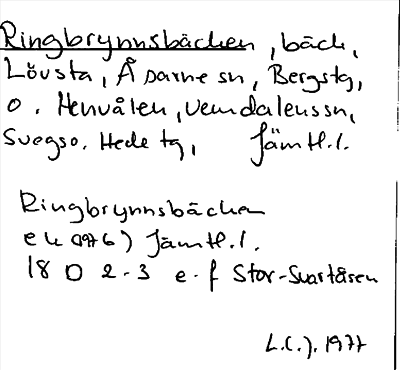 Ringbrynnsbäcken, bäck,
Lövsta, Åsarne sn, Bergs tg,
o. Henvålen, Vemdalens sn,
Svegs o. Hede tg, Jämtl.l.
Ringbrynnsbäcken
ek (1976) Jämtl.l.
18 D 2-3 e-f Stor-Svartåsen
L.C.J. 1977